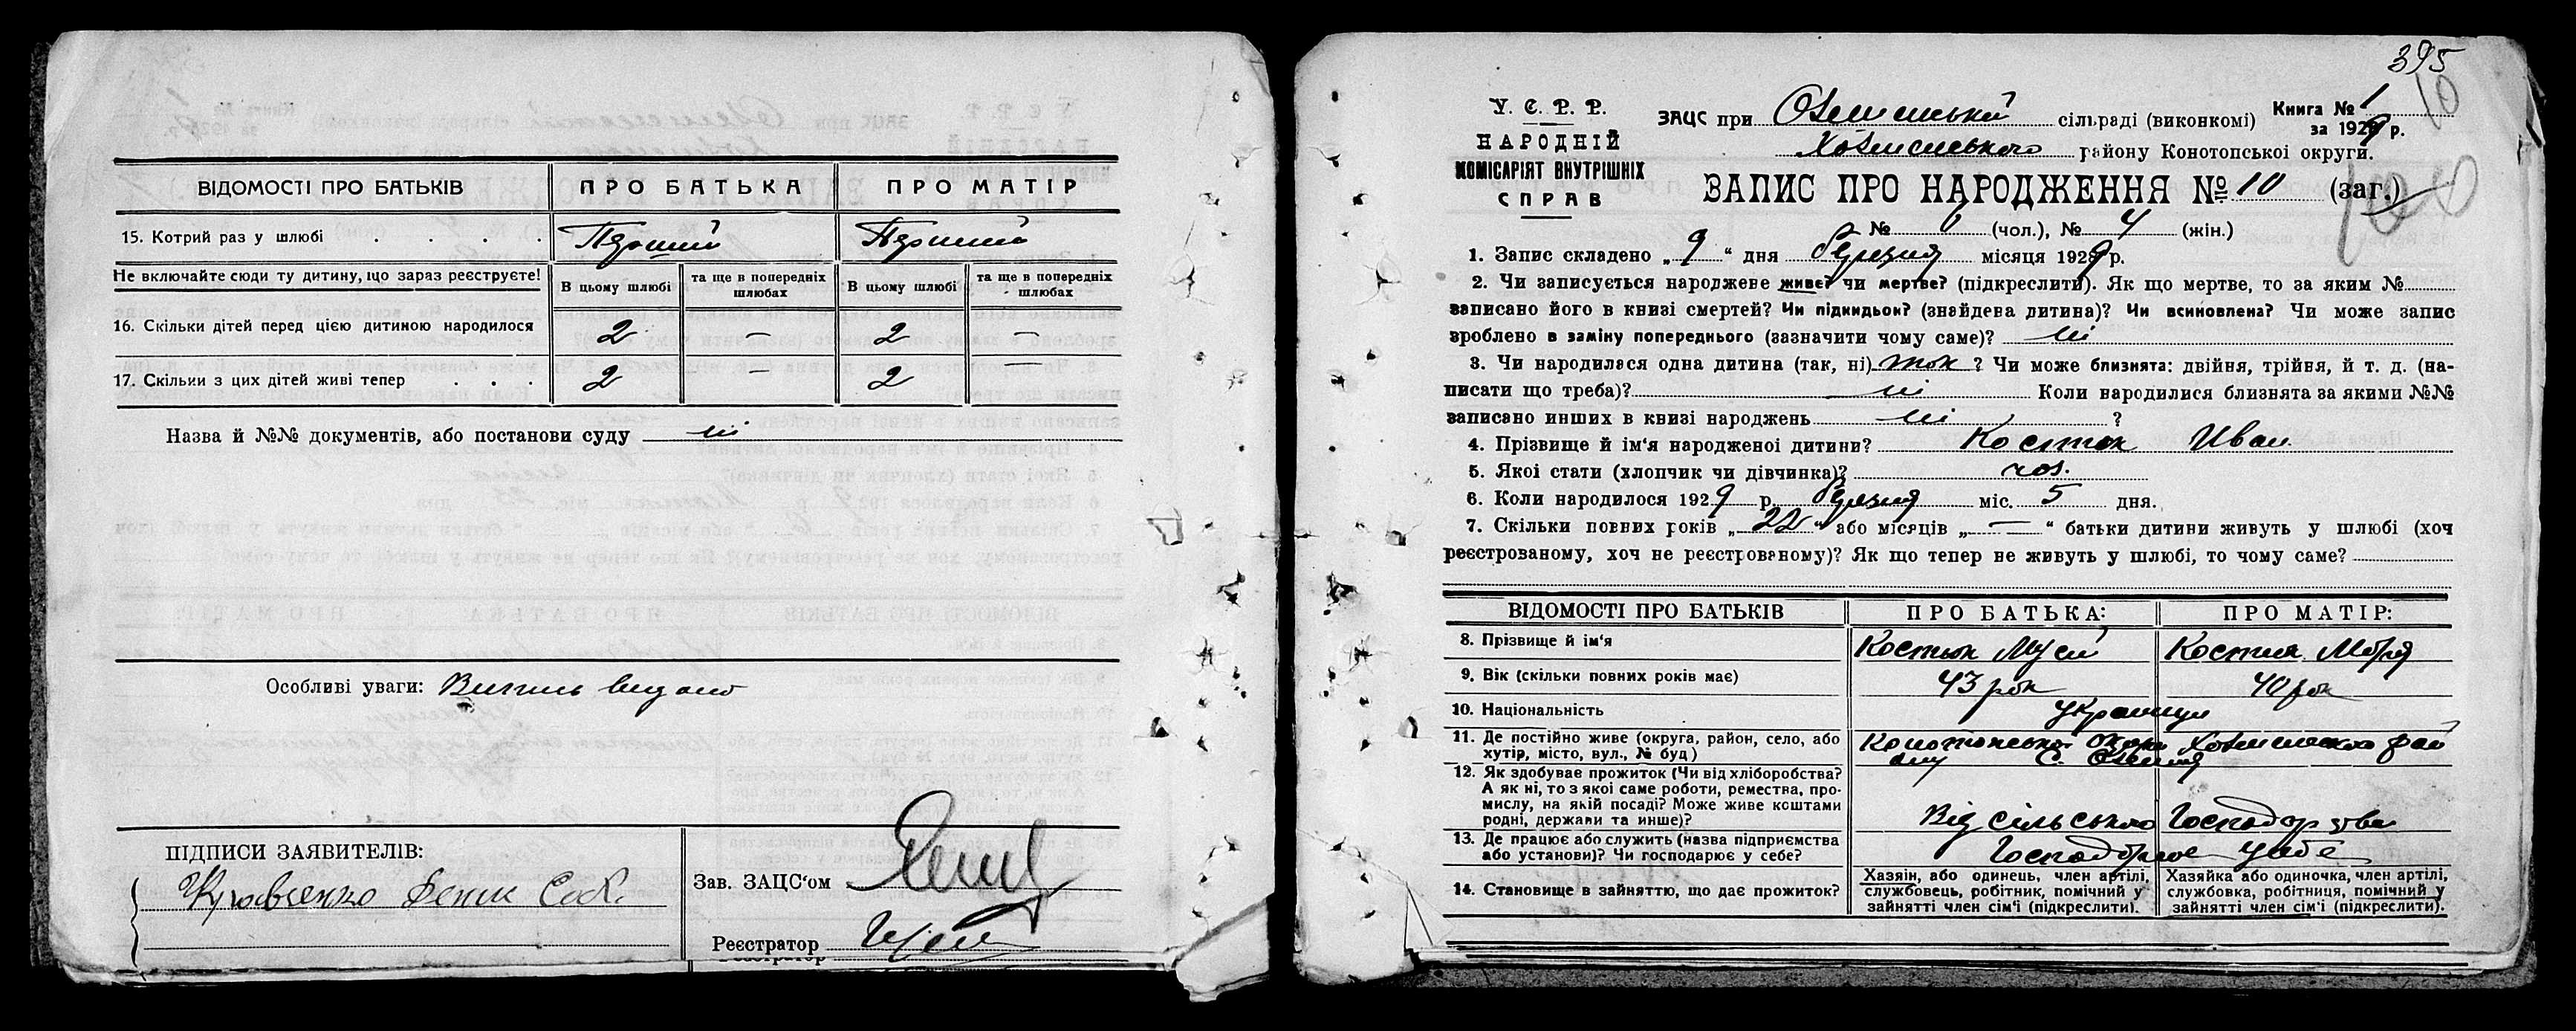 ВІДОМОСТІ ПРО БАТЬКІВ ПРО БАТЬКА ПРО МАТІР
15. Котрий раз у шлюбі . . . . Перший Перший
Не включайте сюди ту дитину, що зараз реєструєте! В цьому шлюбі та ще в попередніх шлюбах В цьому шлюбі та ще в попередніх шлюбах
16. Скільки дітей перед цією дитиною народилося 2 — 2 —
17. Скільки з цих дітей живі тепер . . . 2 — 2
Назва й №№ документів, або постанови суду ні
Особливі уваги: Витись видано
ПІДПИСИ ЗАЯВИТЕЛІВ:
Кравченко
Зав. ЗАЦС'ом
Реєстратор
395
10
У. С. Р. Р.
НАРОДНІЙ
КОМІСАРІЯТ ВНУТРІШНІХ
СПРАВ
ЗАЦС при сільраді (виконкомі) Книга № 1
за 1929 р.
району Конотопської округи.
ЗАПИС ПРО НАРОДЖЕННЯ № 10 (заг.)
№ 6 (чол.), № 4 (жін.)
1. Запис складено „ 9 “ дня березня місяця 1929 р.
2. Чи записується народжене живе? чи мертве? (підкреслити). Як що мертве, то за яким №
записано його в книзі смертей? Чи підкидьок? (знайдена дитина)? Чи всиновлена? Чи може запис
зроблено в заміну попереднього (зазначити чому саме)? ні
3. Чи народилася одна дитина (так, ні) так ? Чи може близнята: двійня, трійня, й т. д. (на-
писати що треба)? ні Коли народилися близнята за якими №№
записано инших в книзі народжень ні ?
4. Прізвище й ім'я народженої дитини? Костюк Иван
5. Якої стати (хлопчик чи дівчинка)? чол.
6. Коли народилося 1929 р. березня міс. 5 дня.
7. Скільки повних років „ 22 “ або місяців „ — “ батьки дитини живуть у шлюбі (хоч
реєстрованому, хоч не реєстрованому)? Як що тепер не живуть у шлюбі, то чому саме?
ВІДОМОСТІ ПРО БАТЬКІВ ПРО БАТЬКА: ПРО МАТІР:
8. Прізвище й ім'я Костюк Мусій Костюк Марія
9. Вік (скільки повних років має) 43 рок 40 рок
10. Національність Українци
11. Де постійно живе (округа, район, село, або
хутір, місто, вул., № буд) Конотопської округи рай
ону С.
12. Як здобуває прожиток (Чи від хліборобства?
А як ні, то з якої саме роботи, ремества, про-
мислу, на якій посаді? Може живе коштами
родні, держави та инше)? Від сільського Господарства
13. Де працює або служить (назва підприємства
або установи)? Чи господарює у себе? Господарює у себе
14. Становище в зайняттю, що дає прожиток?
Хазяїн, або одинець, член артілі,
службовець, робітник, помічний у
зайнятті член сім'ї (підкреслити).
Хазяйка або одиночка, член артілі,
службовка, робітниця, помічний у
зайнятті член сім'ї (підкреслити).